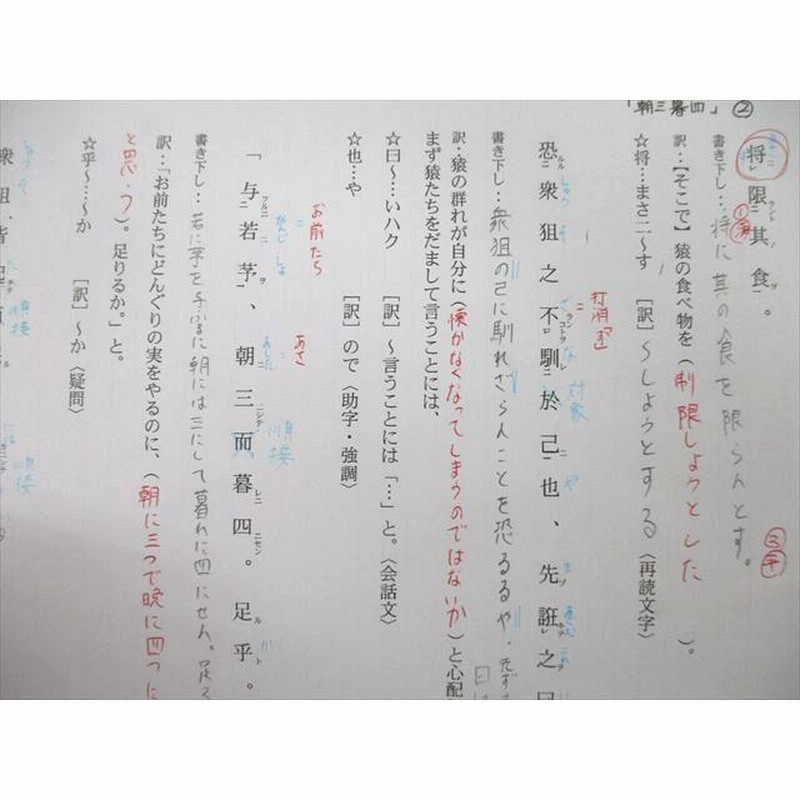 「朝三暮四」②
将ニ限ラント其ノ食ヲ。
書き下し…将に其の食を限らんとす。
訳…【そこで】猿の食べ物を(制限しようとした)。
☆将…まさニ~す [訳]~しようとする〈再読文字〉
恐ルル衆狙之不ランコトヲ馴レ於己ニ也、先ヅ誑キテ之ヲ曰
打消「ず」
対象
書き下し…衆狙の己に馴れざらんことを恐るるや、先ず
訳…猿の群れが自分に(懐かなくなってしまうのではないか)と心配
まず猿たちをだまして言うことには、
☆曰~…いハク [訳]~言うことには「…」と。〈会話文〉
☆也…や [訳]ので〈助字・強調〉
お前たち
あさ
「与フルニ若ニ芧ヲ、朝ニ三ニシテ而暮レニ四ニセン。足ル乎ト。
順接
書き下し…若に芧を与ふるに朝には三にして暮れに四にせん。足る
訳…「お前たちにどんぐりの実をやるのに、(朝に三つで晩に四つに
と思う)。足りるか。」と。
☆乎~…~か [訳]~か〈疑問〉
衆狙皆
順接
順接